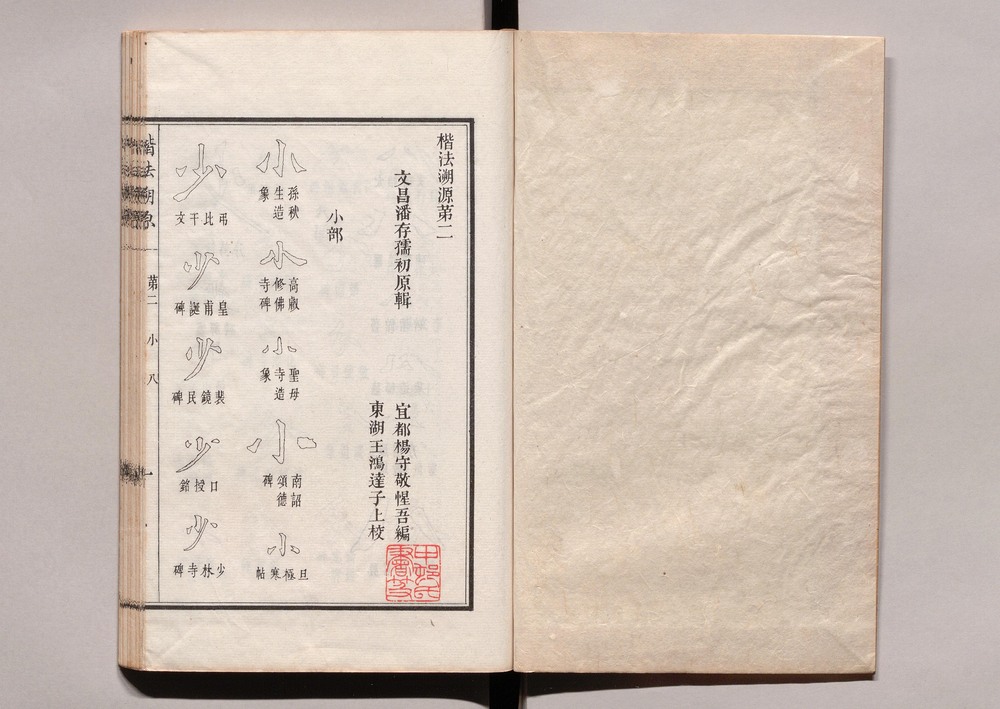 楷法溯源第二
文昌潘存孺初原輯
宜都楊守敬惺吾編
東湖王鴻達子上校
小部
小
孫秋生造象
小
高叡修佛寺碑
小
聖母寺造象
小
南詔德頌碑
小
旦極寒帖
少
弔比干文
少
皇甫誕碑
少
裴鏡民碑
少
口授銘
少
少林寺碑
楷法溯原
第二
小
八
一